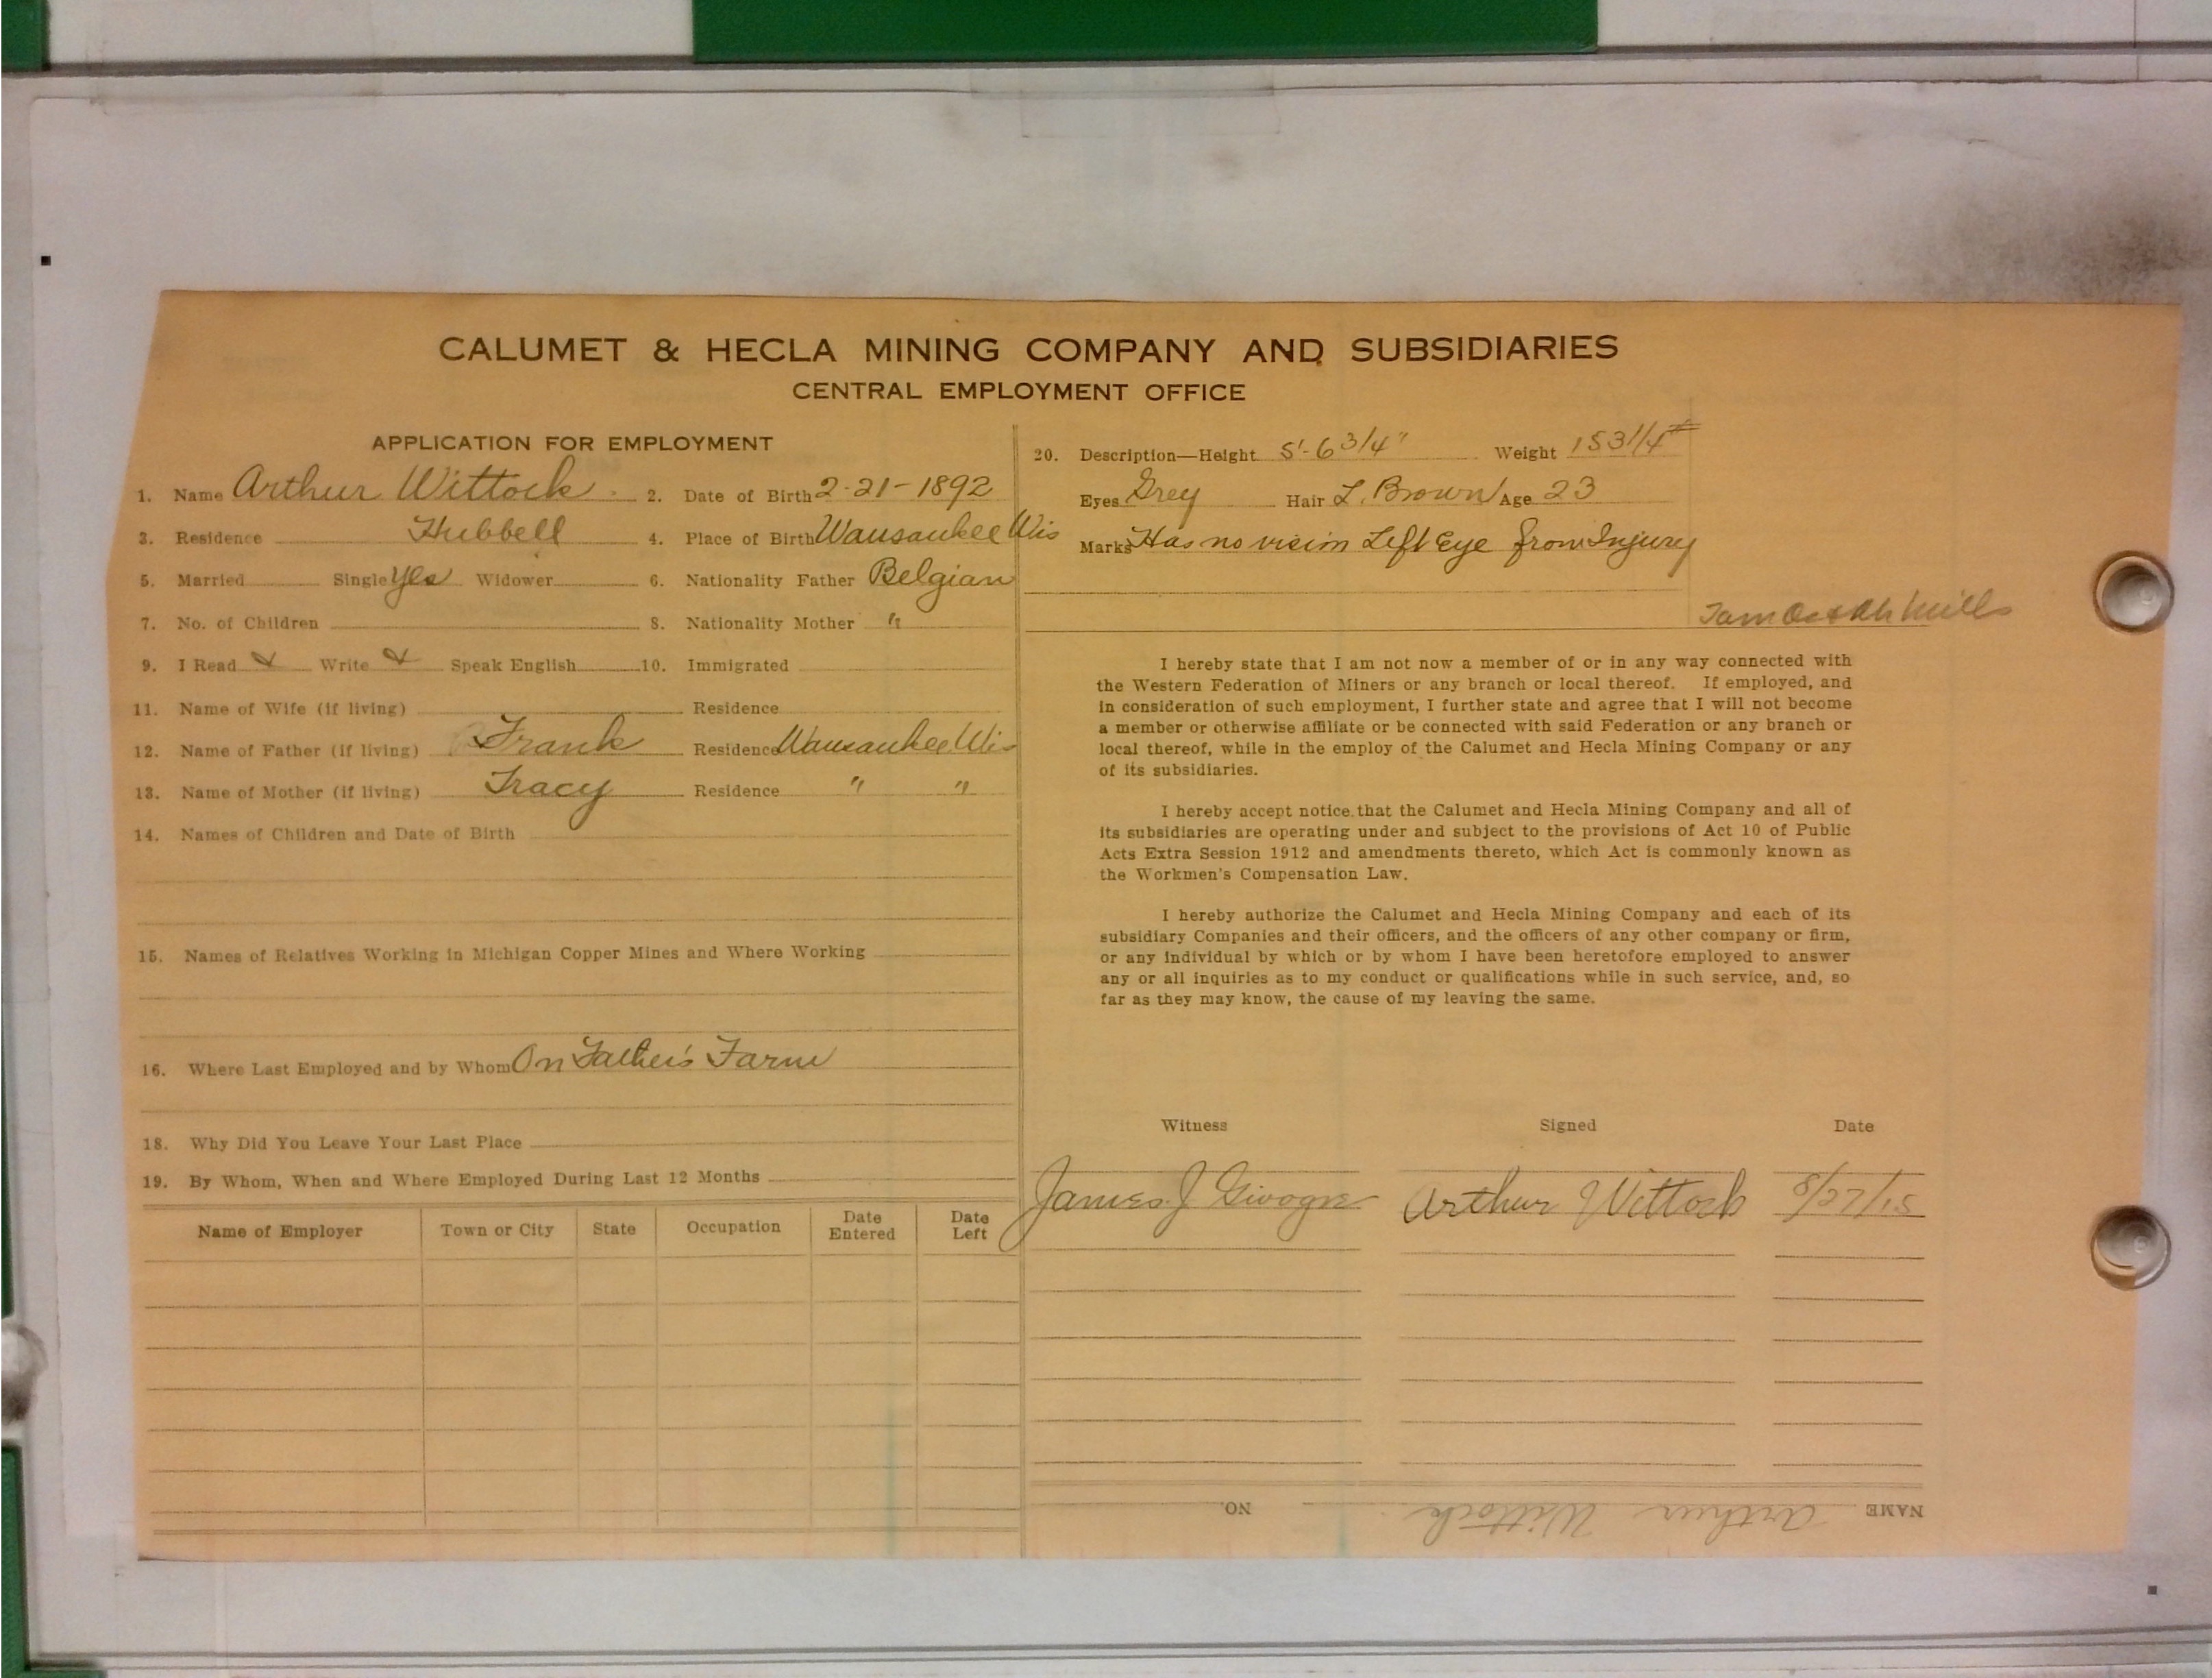 CALUMET & HECLA MINING COMPANY AND SUBSIDIARIES
CENTRAL EMPLOYMENT OFFICE
APPLICATION FOR EMPLOYMENT
1. Name Arthur Wittock 2. Date of Birth 2-21-1892
3. Residence Hubbell 4. Place of Birth Wausaukee Wis
5. Married Single Yes Widower 6. Nationality Father Belgian
7. No. of Children 8. Nationality Mother "
9. I Read Write Speak English 10. Immigrated
11. Name of Wife (if living) Residence
12. Name of Father (if living) Frank Residence Wausaukee Wis
13. Name of Mother (if living) Tracy Residence " "
14. Names of Children and Date of Birth
15. Names of Relatives Working in Michigan Copper Mines and Where Working
16. Where Last Employed and by Whom On Father's Farm
18. Why Did You Leave Your Last Place
19. By Whom, When and Where Employed During Last 12 Months
Name of Employer Town or City State Occupation Date Entered Date Left
20. Description—Height 5'-6 3/4" Weight 153 1/4 #
Eyes Grey Hair L. Brown Age 23
Marks Has no vision Left Eye from Injury
Mills
I hereby state that I am not now a member of or in any way connected with
the Western Federation of Miners or any branch or local thereof. If employed, and
in consideration of such employment, I further state and agree that I will not become
a member or otherwise affiliate or be connected with said Federation or any branch or
local thereof, while in the employ of the Calumet and Hecla Mining Company or any
of its subsidiaries.
I hereby accept notice that the Calumet and Hecla Mining Company and all of
its subsidiaries are operating under and subject to the provisions of Act 10 of Public
Acts Extra Session 1912 and amendments thereto, which Act is commonly known as
the Workmen's Compensation Law.
I hereby authorize the Calumet and Hecla Mining Company and each of its
subsidiary Companies and their officers, and the officers of any other company or firm,
or any individual by which or by whom I have been heretofore employed to answer
any or all inquiries as to my conduct or qualifications while in such service, and, so
far as they may know, the cause of my leaving the same.
Witness Signed Date
James J Arthur Wittock 8/27/15
NAME Arthur Wittock NO.